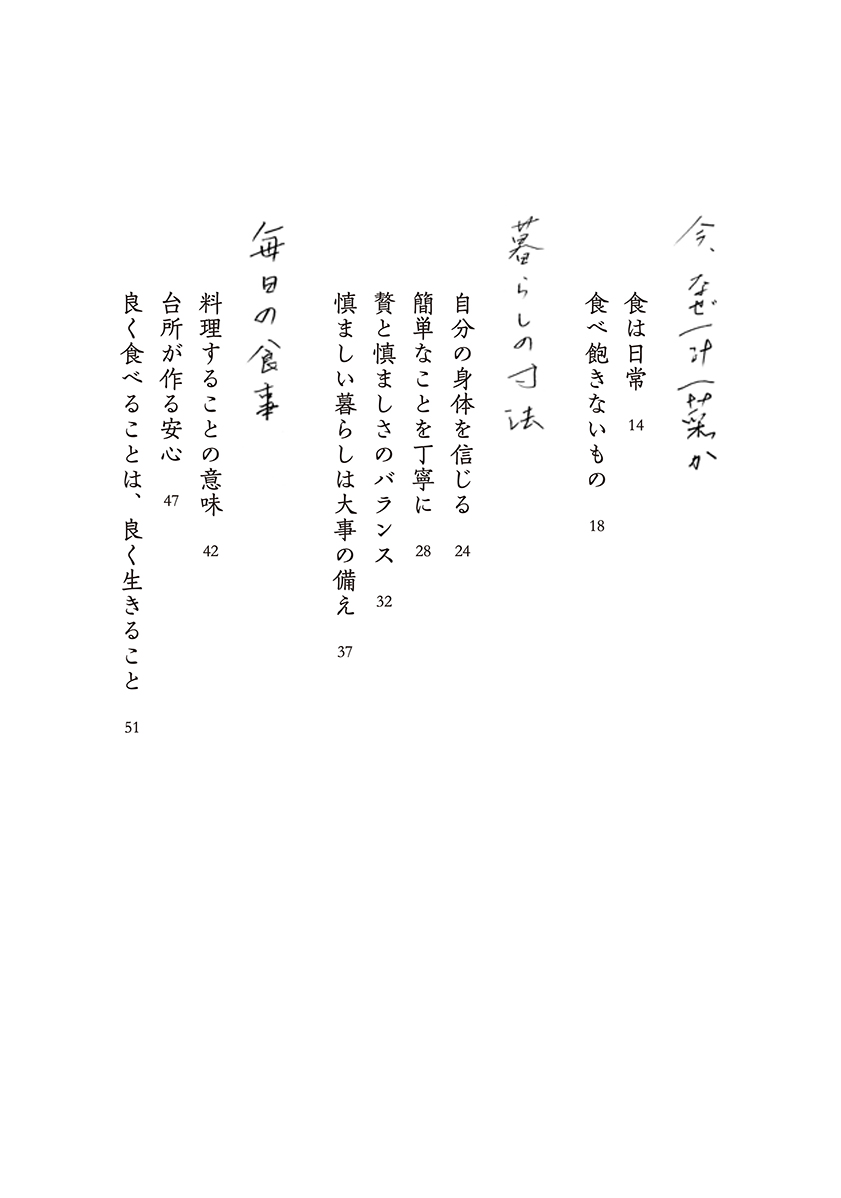 今、なぜ一汁一菜か
食は日常 14
食べ飽きないもの 18
暮らしの寸法
自分の身体を信じる 24
簡単なことを丁寧に 28
贅と慎ましさのバランス 32
慎ましい暮らしは大事の備え 37
毎日の食事
料理することの意味 42
台所が作る安心 47
良く食べることは、良く生きること 51